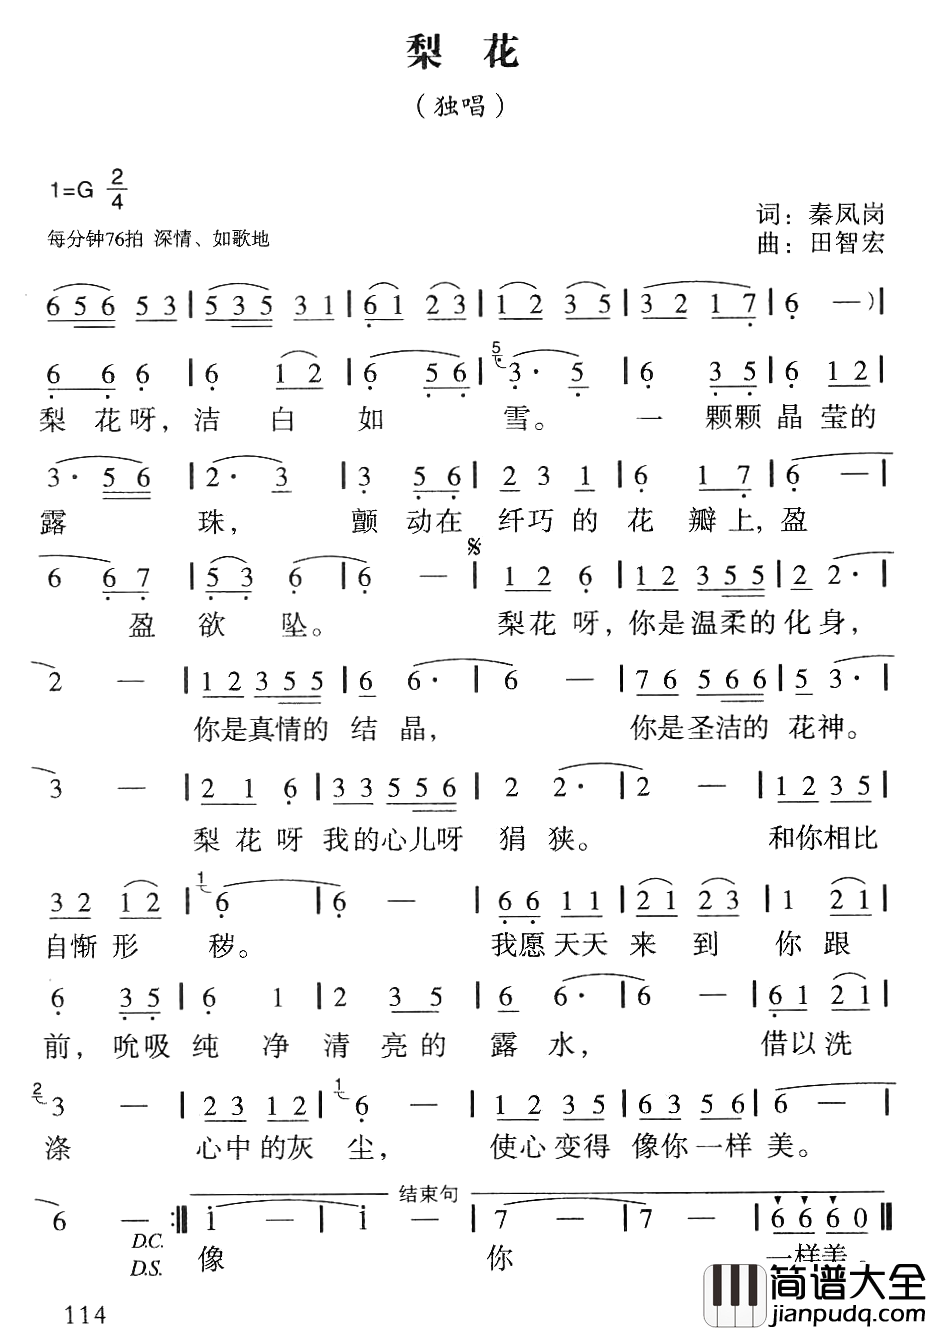 梨花
（独唱）
1=G 2/4
每分钟76拍 深情、如歌地
词：秦凤岗
曲：田智宏
6 5 6 5 3 | 5 3 5 3 1 | 6 1 2 3 | 1 2 3 5 | 3 2 1 7 | 6 — ) |
6 6 6 | 6 1 2 | 6 5 6 | 5 3· 5 | 6 3 5 | 6 1 2 |
梨花呀，洁白如雪。一颗颗晶莹的
3· 5 6 | 2· 3 | 3 5 6 | 2 3 1 | 6 1 7 | 6 — |
露珠，颤动在纤巧的花瓣上，盈
6 6 7 | 5 3 6 | 6 — | 1 2 6 | 1 2 3 5 5 | 2 2· |
盈欲坠。梨花呀，你是温柔的化身，
2 — | 1 2 3 5 5 | 6 6· | 6 — | 7 6 5 6 6 | 5 3· |
你是真情的结晶，你是圣洁的花神。
3 — | 2 1 6 | 3 3 5 5 6 | 2 2· | 2 — | 1 2 3 5 |
梨花呀我的心儿呀狷狭。和你相比
3 2 1 2 | 1 6 | 6 — | 6 6 1 1 | 2 1 2 3 | 1 2 1 |
自惭形秽。我愿天天来到你跟
6 3 5 | 6 1 | 2 3 5 | 6 6· | 6 — | 6 1 2 1 |
前，吮吸纯净清亮的露水，借以洗
2 3 — | 2 3 1 2 | 1 6 — | 1 2 3 5 | 6 3 5 6 | 6 — |
涤心中的灰尘，使心变得像你一样美。
结束句
6 — :‖ 1 — | 1 — | 7 — | 7 — | 6 6 6 0 ‖
D.C.
D.S.
像你一样美。
114
简谱大全
jianpudq.com